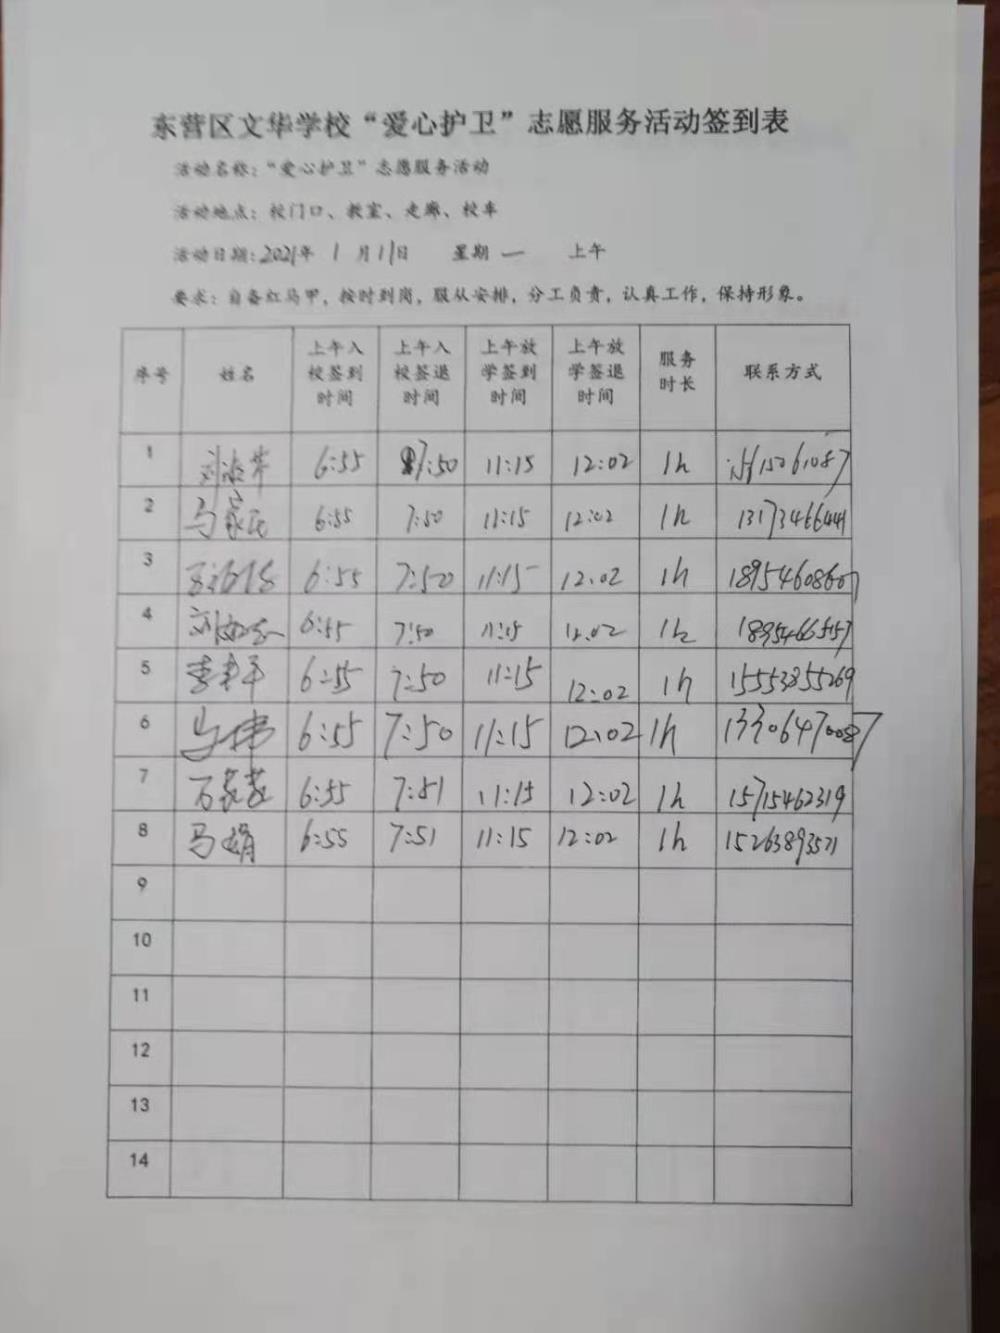 东营区文华学校“爱心护卫”志愿服务活动签到表
活动名称：“爱心护卫”志愿服务活动
活动地点：校门口、教室、走廊、校车
活动日期：2021年 1月11日 星期一 上午
要求：自备红马甲，按时到岗，服从安排，分工负责，认真工作，保持形象。
序号 姓名 上午入校签到时间 上午入校签退时间 上午放学签到时间 上午放学签退时间 服务时长 联系方式
1 6:55 7:50 11:15 12:02 1h
2 马家民 6:55 7:50 11:15 12:02 1h 13173466441
3 6:55 7:50 11:15 12:02 1h 18954608607
4 6:55 7:50 11:15 12:02 1h 18954665157
5 6:55 7:50 11:15 12:02 1h 15553855269
6 马伟 6:55 7:50 11:15 12:02 1h 13306470087
7 6:55 7:51 11:15 12:02 1h 15715462319
8 马娟 6:55 7:51 11:15 12:02 1h 15263893571
9
10
11
12
13
14